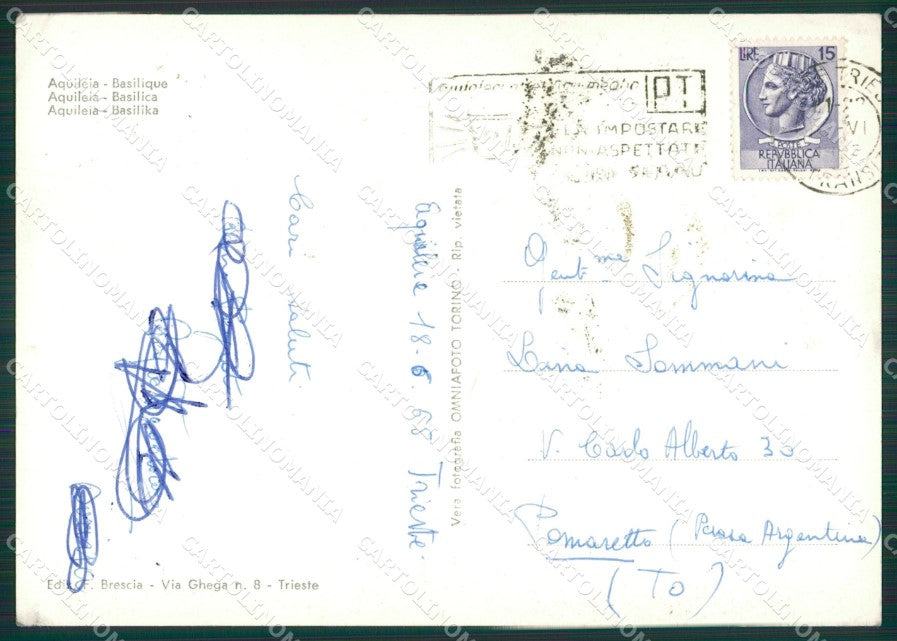 Aquileia - Basilique
Aquileia - Basilica
Aquileia - Basilika
PT
IMPOSTARE
NON ASPETTATE
LIRE 15
POSTE
REPUBBLICA
ITALIANA
Cari saluti
Aquileia 18-6-68 Trieste.
Vera fotografia OMNIAFOTO TORINO - Rip. vietata
Gent.ma Signorina
Lina Sommani
V. Carlo Alberto 33
Pomaretto (Perosa Argentina)
(TO)
F. Brescia - Via Ghega n. 8 - Trieste
CARTOLINOMANIA